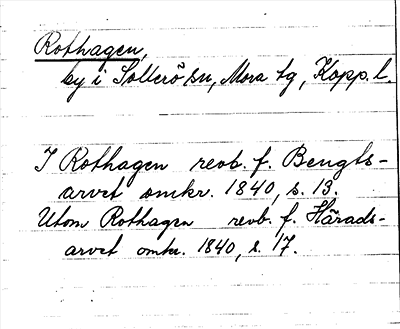 Rothagen,
by i Sollerö sn, Mora tg, Kopp. l.
I Rothagen revb. f. Bengts-
arvet omkr. 1840, s. 13.
Utom Rothagen revb. f. Härads-
arvet omkr. 1840, s. 17.